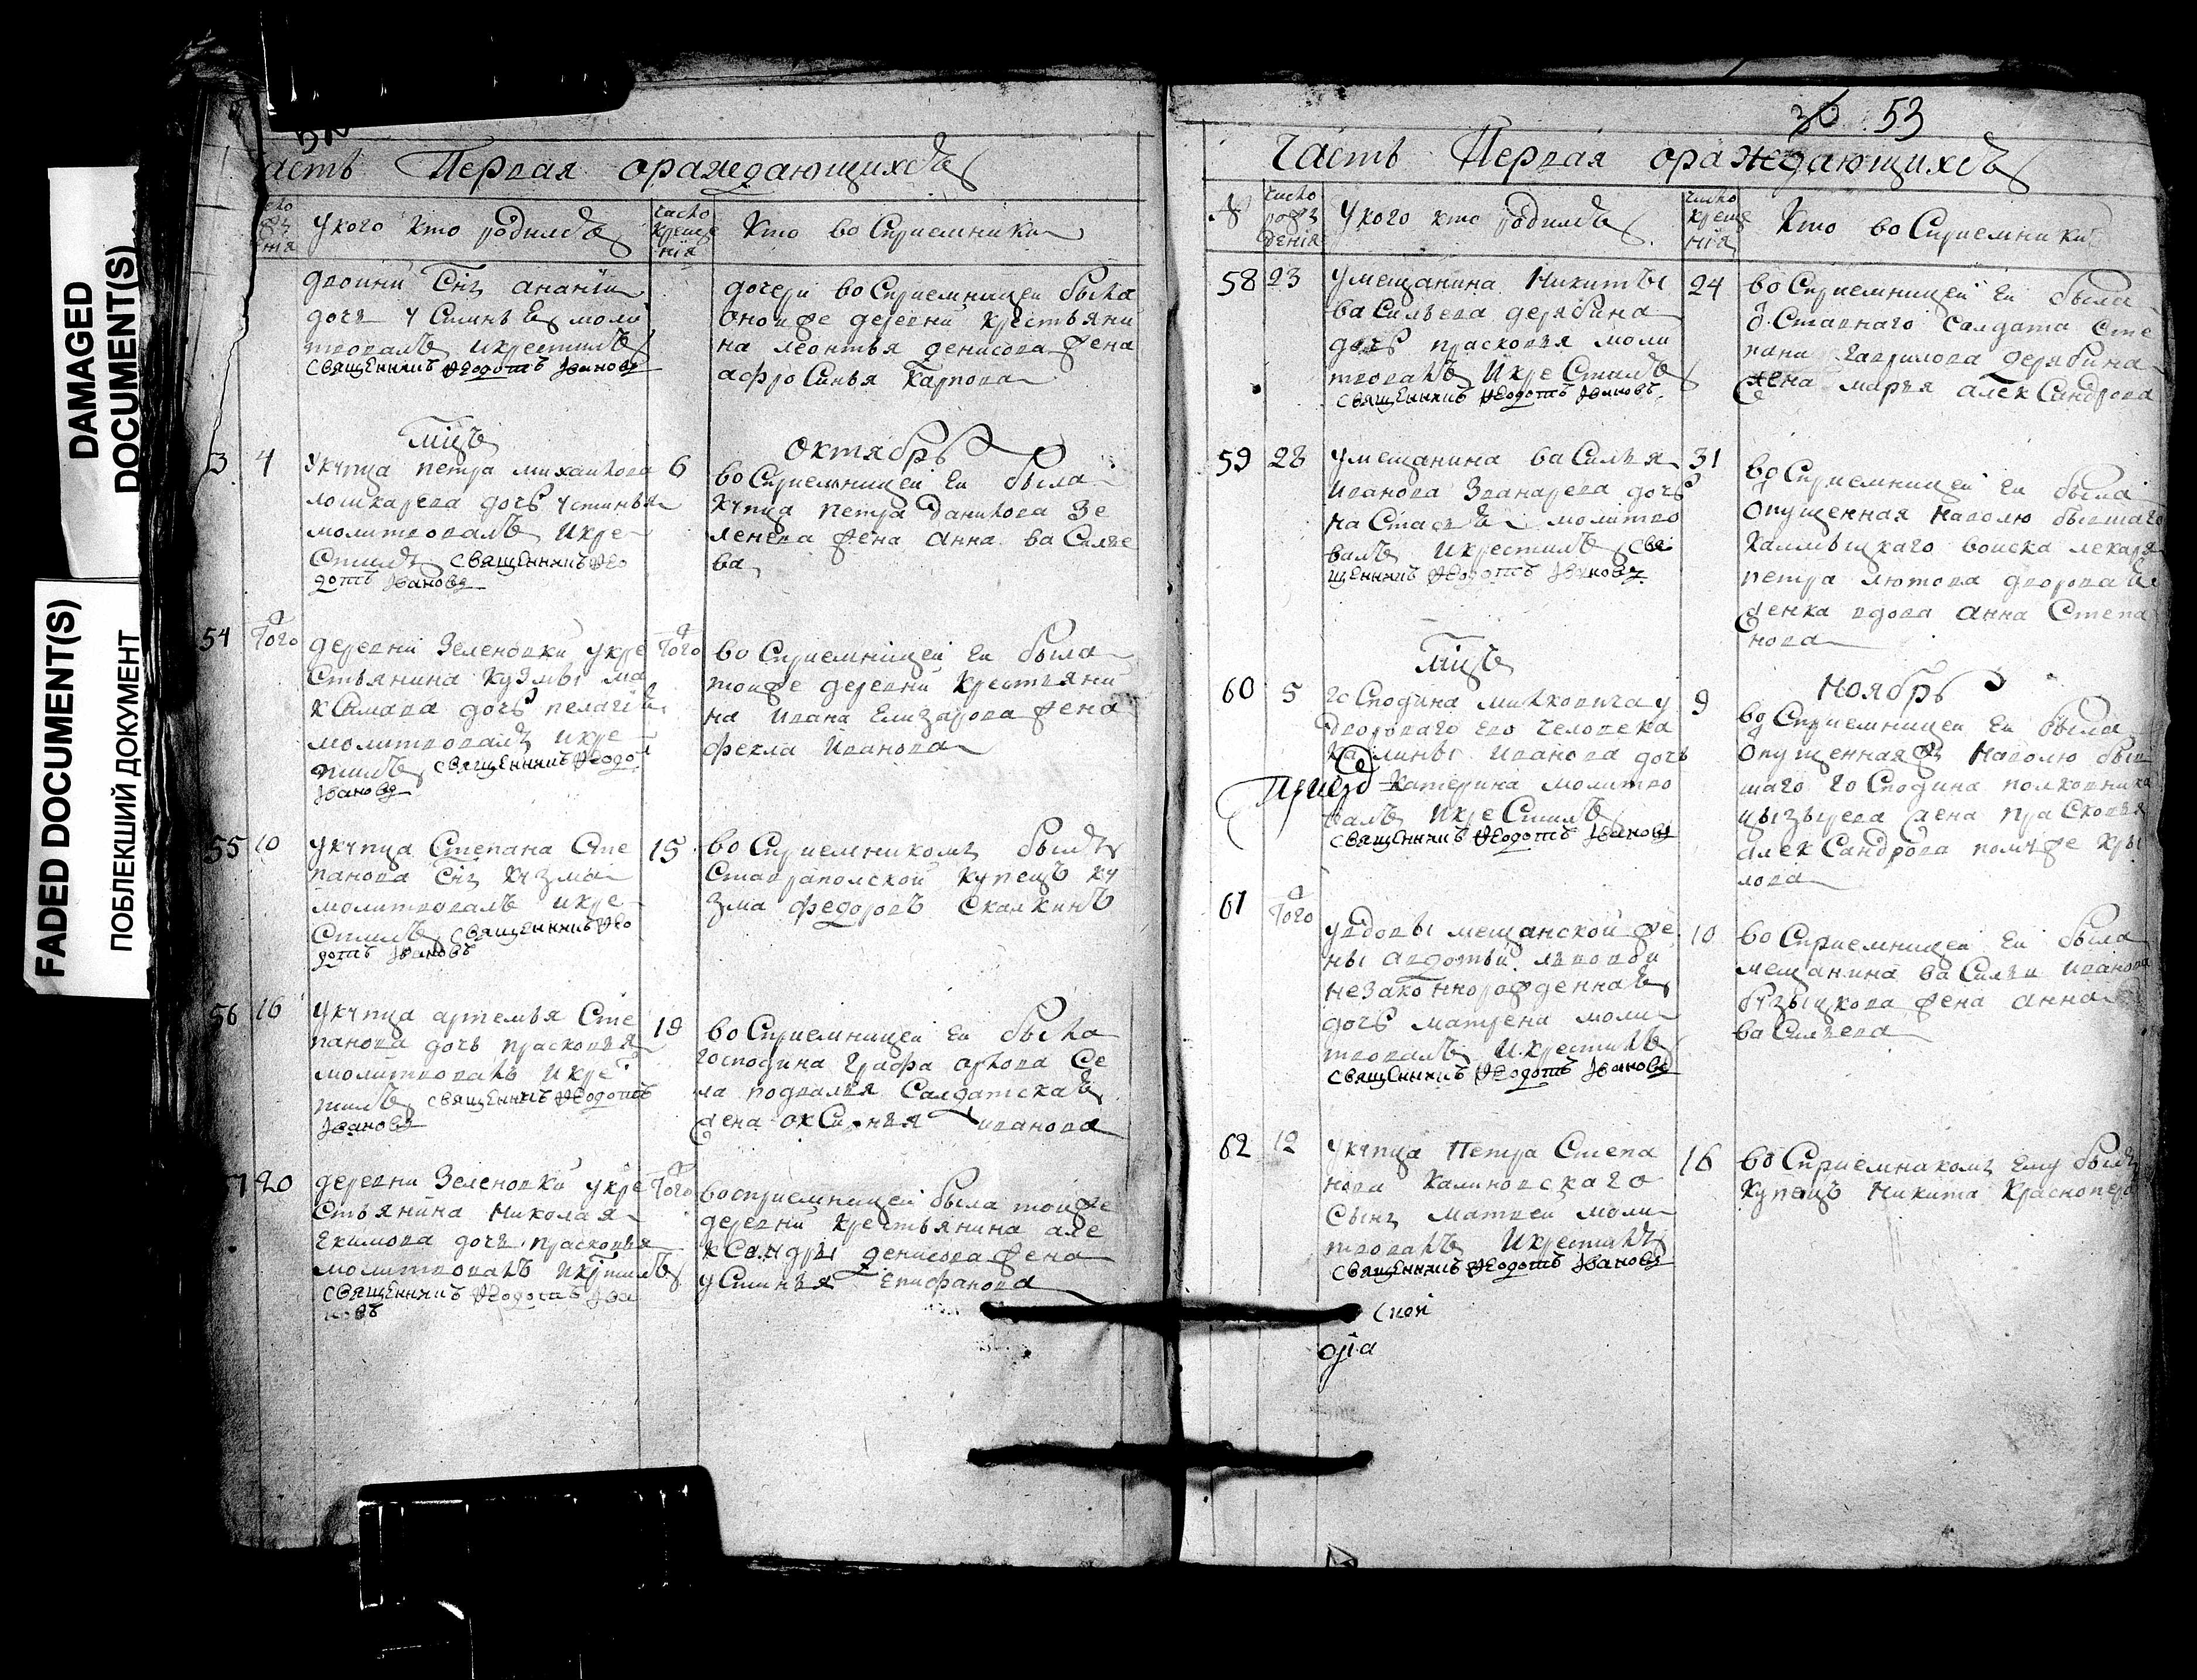 DAMAGED
DOCUMENT(S)
FADED DOCUMENT(S)
ПОБЛЕКШИЙ ДОКУМЕНТ
асть Первая ораждающихся
У кого кто родился
число
креще
нія
Кто восприемники
двоини Снъ Ананіи
дочь Устинья моли
твовалъ и крестилъ
священникъ Ѳедотъ Ивановъ
дочери восприемницеи была
оной же деревни крестьяни
на Леонтья Денисова жена
Афросинья Карпова
мцъ
октябрь
3 4
У купца Петра Михаилова
лошкарева дочь Устинья
молитвовалъ и кре
стилъ священникъ Ѳео
дотъ Ивановъ
6
восприемницеи еи была
купца Петра Данилова Зе
ленева жена Анна Василье
ва
54 того
деревни Зеленовки у кре
стьянина Кузмы Ма
ксимова дочь Пелагия
молитвовалъ и кре
тилъ священникъ Ѳеодо
Ивановъ
того
восприемницеи еи была
тоиже деревни крестьяни
на Ивана Елизарова жена
Фекла Иванова
55 10
У купца Степана Сте
панова Снъ Кузма
молитвовалъ и кре
стилъ священникъ Ѳео
дотъ Ивановъ
15
восприемникомъ былъ
Ставрапольской купецъ Ку
зма Федоровъ Скалкинъ
56 16
У купца Артемья Сте
панова дочь Прасковья
молитвовалъ и кре
тилъ священникъ Ѳеодотъ
Ивановъ
19
восприемницеи еи была
господина Графа Орлова се
ла Подвалья салдатская
жена Оксинья Иванова
20
деревни Зеленовки у кре
стьянина Николая
Екимова дочь Прасковья
молитвовалъ и кртилъ
священникъ Ѳеодотъ Ива
новъ
того
восприемницеи была тоиже
деревни крестьянина Але
ксандры Денисова жена
Устинья Епифанова
53
Часть Первая ораждающихся
№
число
рож
денія
У кого кто родился
число
креще
нія
Кто восприемники
58 23
У мещанина Никиты
Васильева Дерябина
дочь Прасковья моли
твовалъ и крестилъ
священникъ Ѳеодотъ Ивановъ
24
восприемницеи еи была
отставнаго салдата Сте
пана Гаврилова Дерябина
жена Марья Александрова
59 28
У мещанина Василья
Иванова Званарева дочь
Настасья молитво
валъ и крестилъ свя
щенникъ Ѳеодотъ Ивановъ
31
восприемницеи еи была
отпущенная на волю бывшаго
калмыцкаго воиска лекаря
Петра Лютова дворовая
женка вдова Анна Степа
нова
мцъ
ноябрь
60 5
господина Милковича у
двороваго его человека
Калины Иванова дочь
Катерина молитво
валъ и крестилъ
священникъ Ѳеодотъ Ивановъ
9
восприемницеи еи была
отпущенная на волю быв
шаго господина полковника
Цызырева жена Прасковья
Александрова по муже Кры
лова
61 того
У вдовы мещанской же
ны Авдотьи Львовой
незаконнорожденная
дочь Матрена моли
твовалъ и крестилъ
священникъ Ѳеодотъ Ивановъ
10
восприемницеи еи была
мещанина Василья Иванова
Бузыцкова жена Анна
Васильева
62 12
У купца Петра Степа
нова Калиновскаго
сынъ Матвеи моли
твовалъ и крестилъ
священникъ Ѳеодотъ Ивановъ
16
восприемникомъ ему былъ
купецъ Никита Краснопера